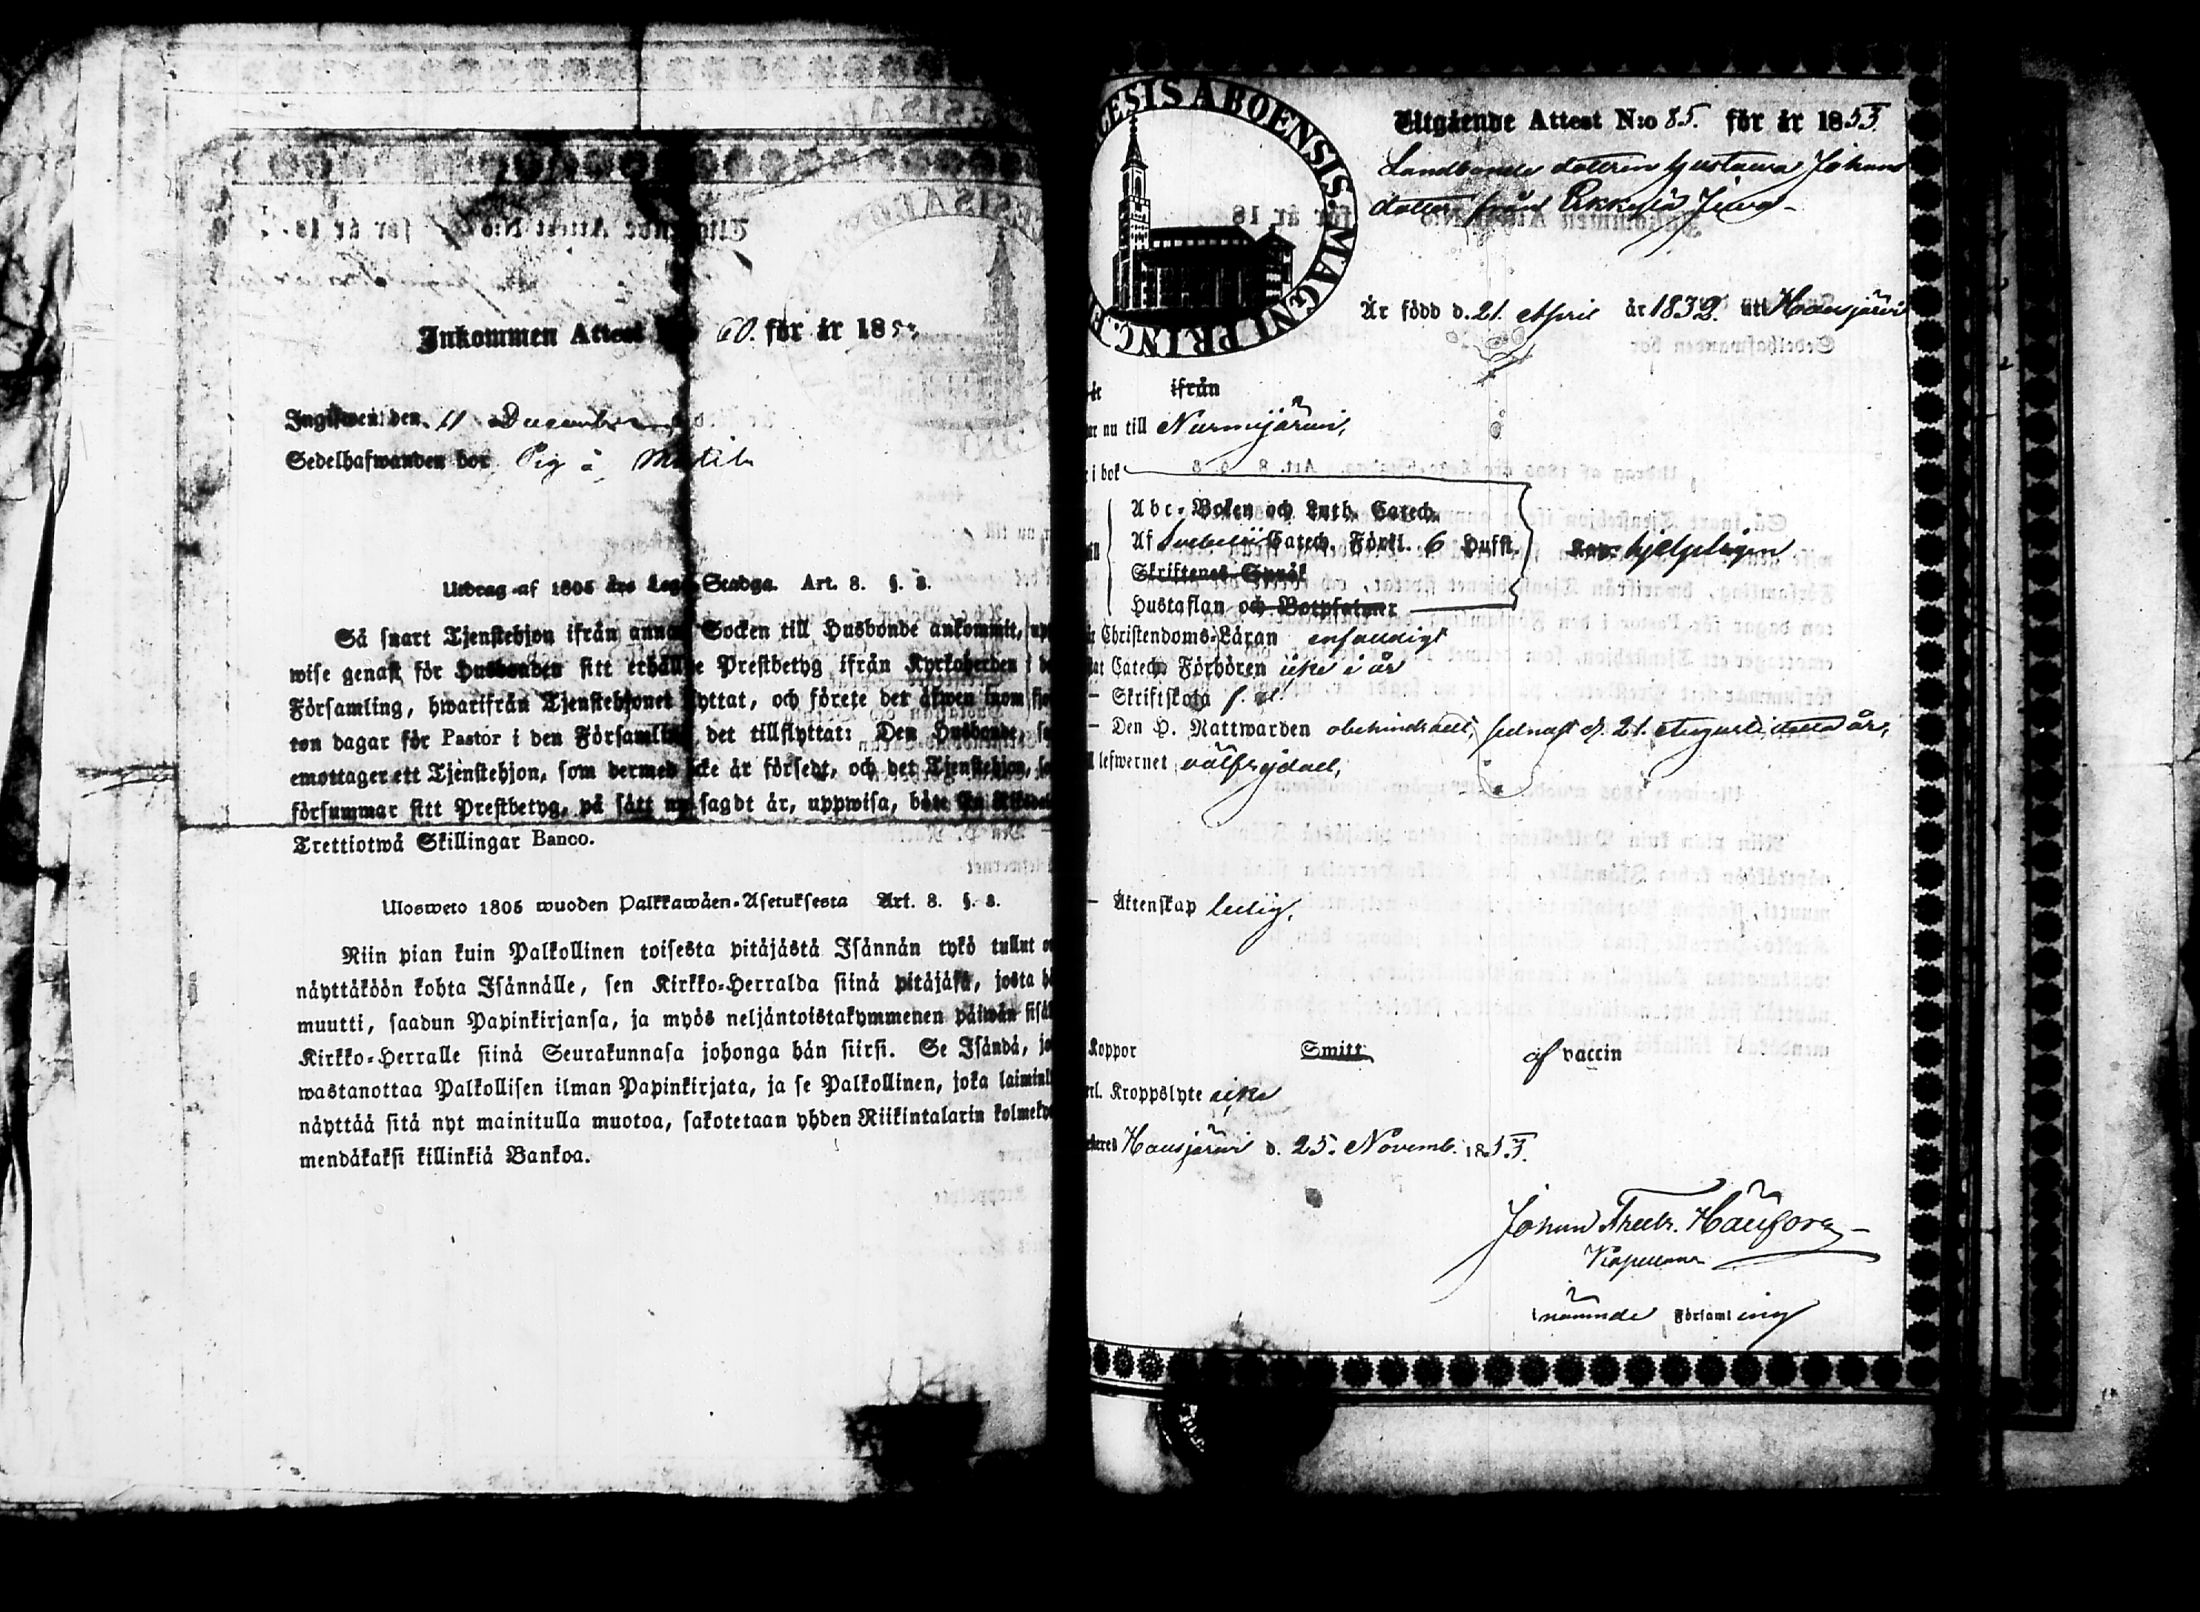 Inkommen Attest 60. för år 185
Ingifwen den 11 December
Sedelhafwanden bor Pig å
Utdrag af 1805 års Lego-Stadga. Art. 8. §. 8.
Så snart Tjenstehjon ifrån annan Socken till Husbonde ankommit, upp
wise genast för Husbonden sitt erhållne Prestbetyg ifrån Kyrkoherden i de
Församling, hwarifrån Tjenstehjonet flyttat, och förete det äfwen inom fjor
ton dagar för Pastor i den Församling det tillflyttat: Den Husbonde, so
emottager ett Tjenstehjon, som dermed icke är försedt, och det Tjenstehjon, so
försummar sitt Prestbetyg, på sätt nu sagdt är, uppwisa, böte En Riksdal
Trettiotwå Skillingar Banco.
Ulosweto 1805 wuoden Palkkawäen-Asetuksesta Art. 8. §. 8.
Niin pian kuin Palkollinen toisesta pitäjästä Isännän tykö tullut on
näyttäköön kohta Isännälle, sen Kirkko-Herralda siinä pitäjäsä, josta hä
muutti, saadun Papinkirjansa, ja myös neljäntoistakymmenen päiwän sisäl
Kirkko-Herralle siinä Seurakunnasa johonga hän siirsi. Se Isändä, jo
wastanottaa Palkollisen ilman Papinkirjata, ja se Palkollinen, joka laiminly
näyttää sitä nyt mainitulla muotoa, sakotetaan yhden Riikintalarin kolmeky
mendäkaksi killinkiä Bankoa.
CESIS ABOENSIS. MAGNI PRINC. F
Utgående Attest N:o 85. för år 1853.
Landbonde dottren Gustawa Johans
dotter från
Är född d. 21. April år 1832. uti Hausjärwi
ifrån
ar nu till Nurmijärwi,
i bok
Abc-Boken och Luth. Catech.
Af Svebelii Catech. Förkl. 6 Hufst. hjelpligen
Skriftenes Språk
Hustaflan och Botpsalmer
Christendoms-Läran enfaldigt
Catech Förhören icke i år
– Skriftskola f. å.
– Den H. Nattwarden obehindradt, sednast d. 21. Augusti detta år,
lefwernet välfrejdad,
– Äktenskap ledig,
Koppor Smitt af vaccin
rl. Kroppslyte icke
Hausjärwi d. 25. Novemb. 1853.
Johan Fredr.
Kapellan
i nämnde Församling